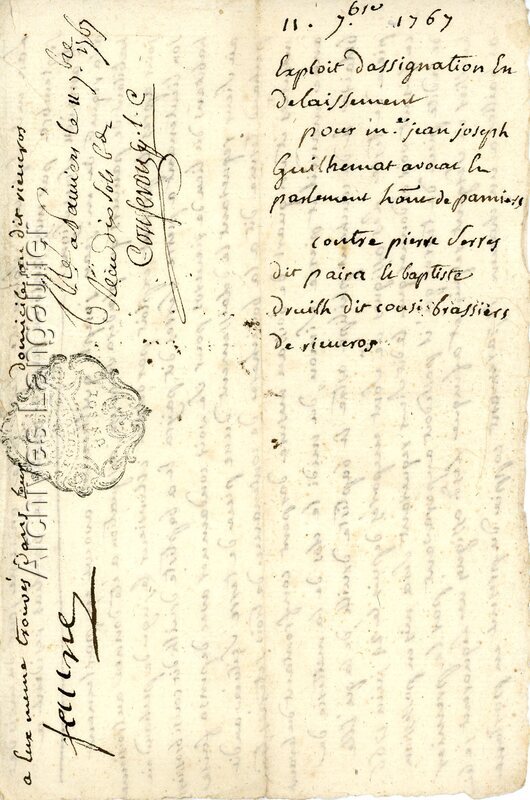 11. 7.bre 1767
Exploit dassignation En
delaissement
pour m.e jean joseph
Guilhemat avocat En
parlement hant de pamiers
contre pierre Serres
dit paira le baptiste
druilh dit cousi brassiers
de rieucros
a eux meme trouvés dans leur domicile au dit rieucros
faure
a pamiers le 11. 7bre 1767
dix sols
Archives Langautier